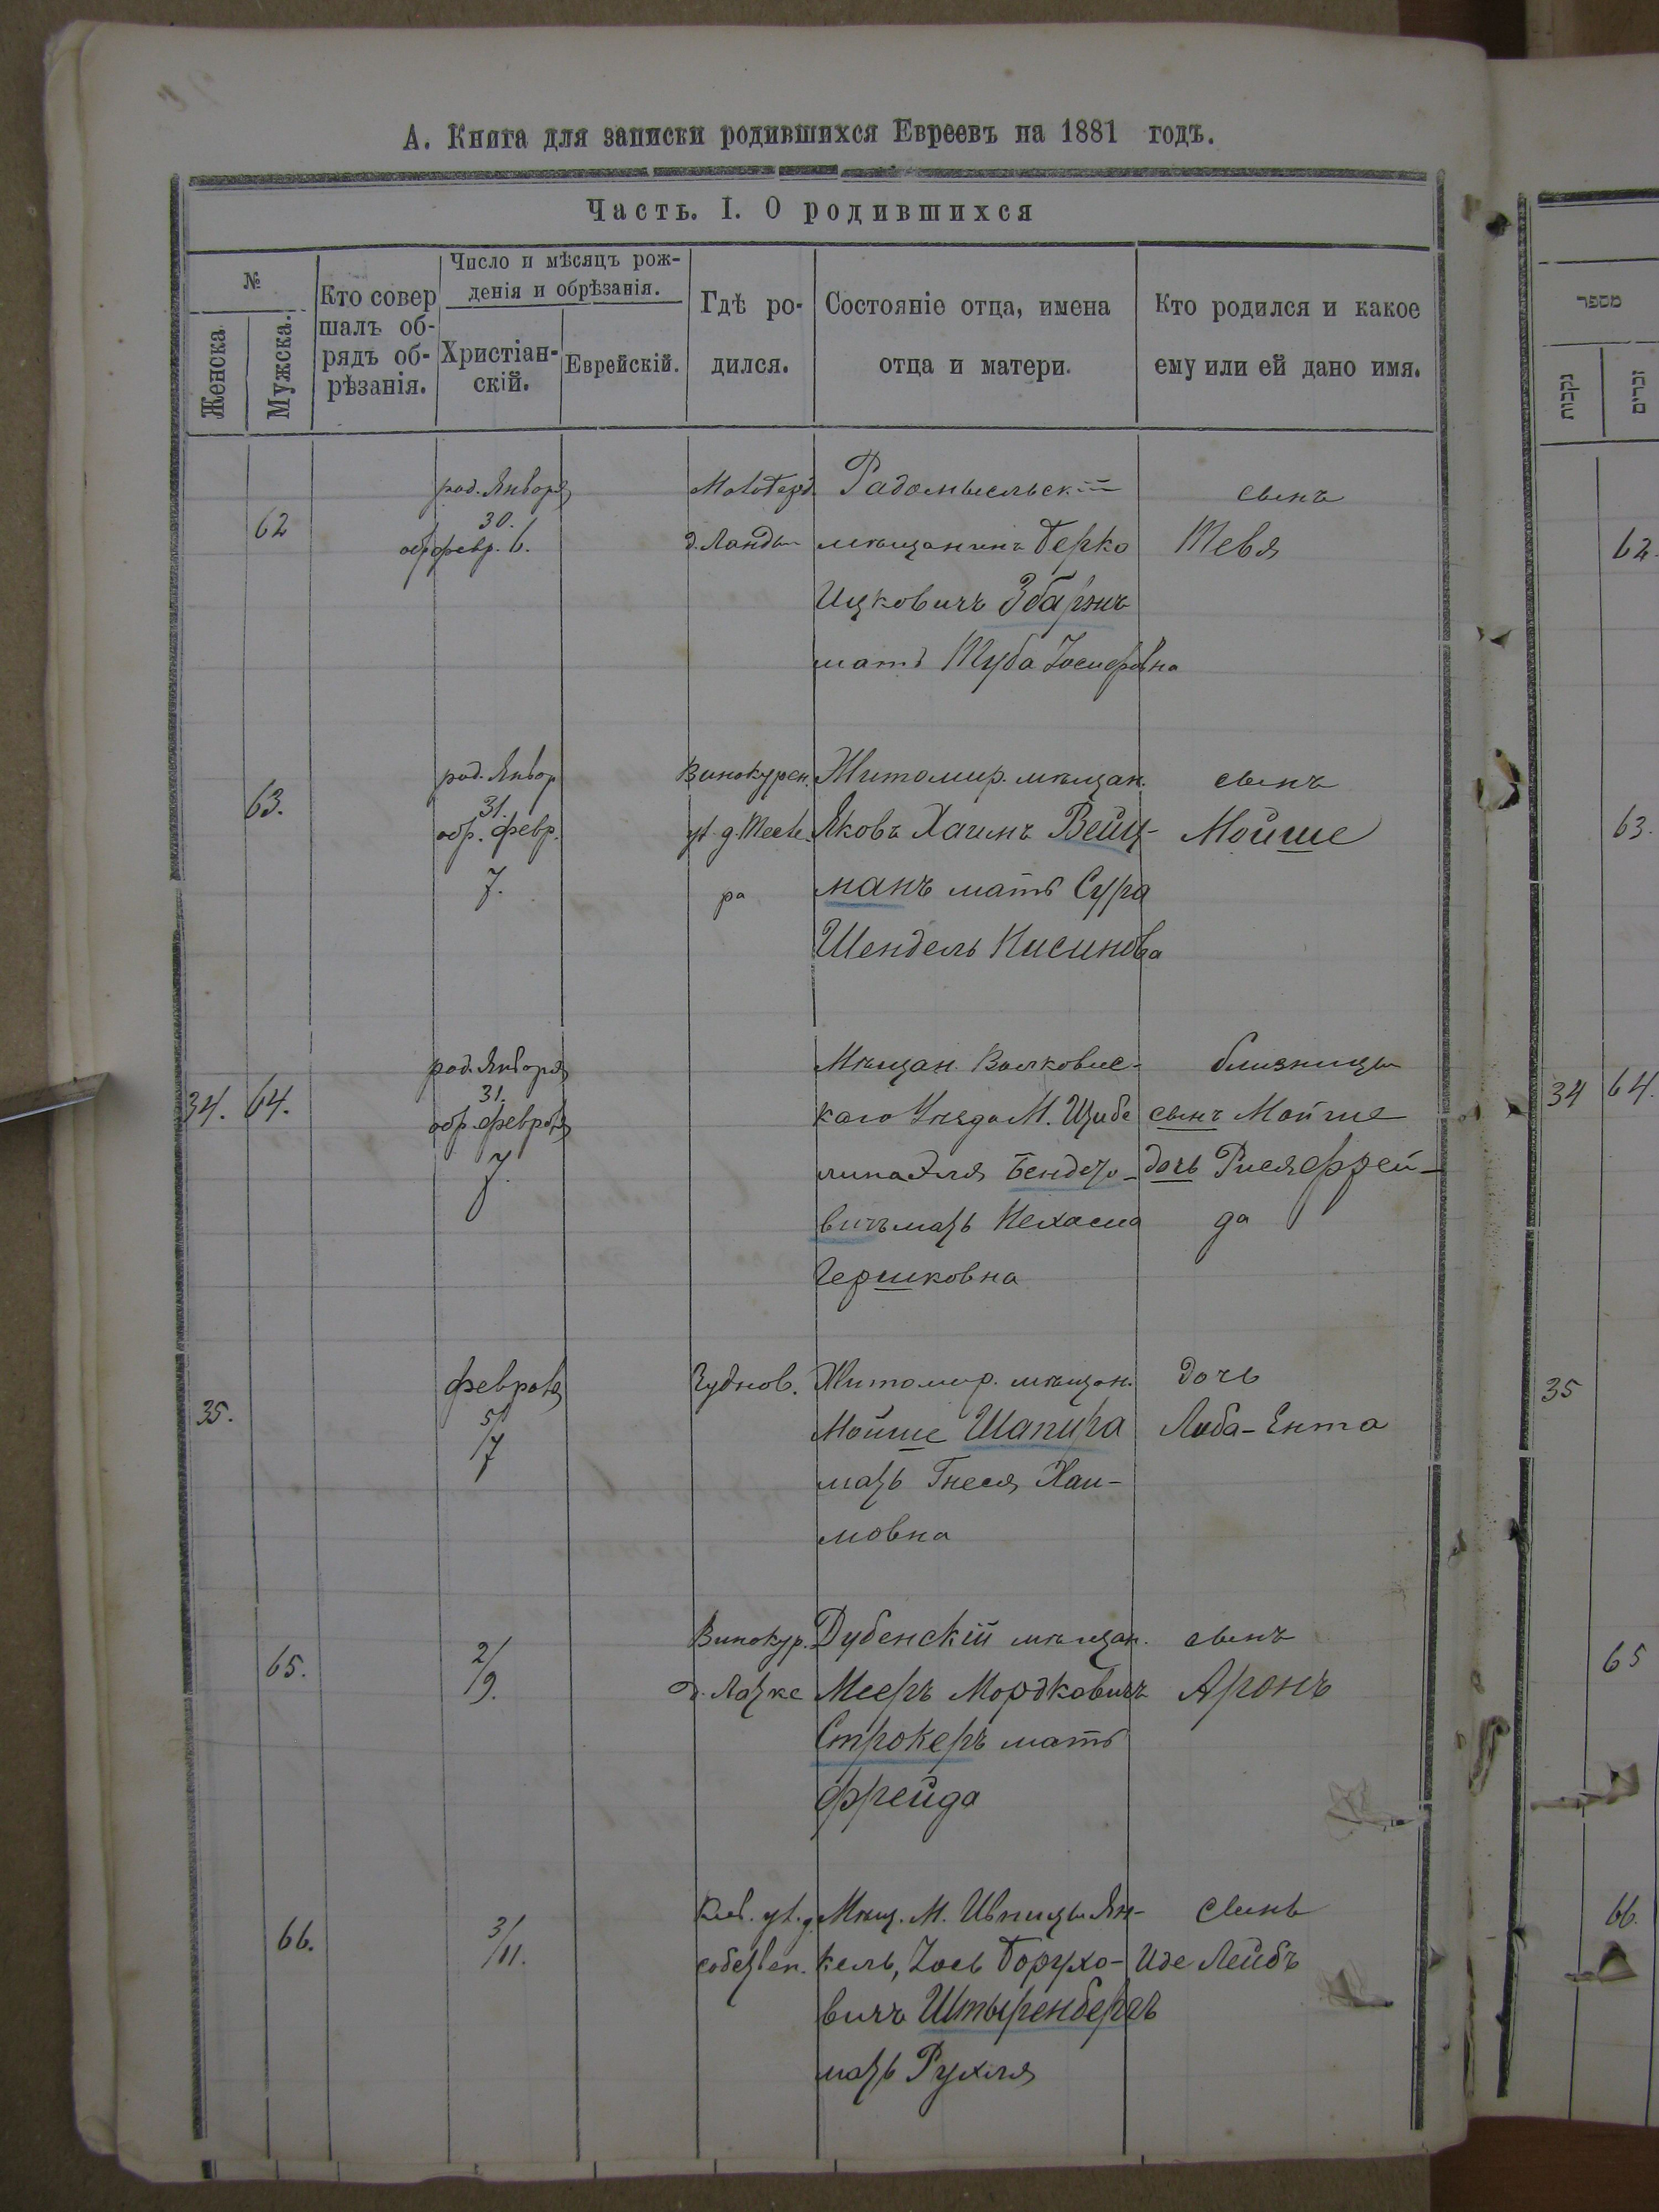 А. Книга для записки родившихся Евреевъ на 1881 годъ.
Часть. I. О родившихся
№
Женска.
Мужска.
Кто совер
шалъ об-
рядъ об-
рѣзанія.
Число и мѣсяцъ рож-
денія и обрѣзанія.
Христіан-
скій.
Еврейскій.
Гдѣ ро-
дился.
Состояніе отца, имена
отца и матери.
Кто родился и какое
ему или ей дано имя.
62
род. Января
30.
обр февр. 6.
д.
Радомысльскій
мѣщанинъ Берко
Ицковичъ
мать Туба Іосифовна
сынъ
Тевя
63.
род. Январ
31.
обр. февр.
7.
Винокурен.
ул. д.
ра
Житомир. мѣщан.
Яковъ Хаимъ Вейц-
манъ мать Сура
Шендель Нисинова
сынъ
Мойше
34. 64.
род. Января
31.
обр. февраля
7.
Мѣщан. Волковис-
каго Уѣзда М.
Эля Бендего-
вичъ мать Нехама
Гершковна
близницы
сынъ Мойше
дочь Рися Фрей-
да
35.
Февраля
5/7
Чуднов.
Житомир. мѣщан.
Мойше Шапира
мать Гнеся Хаи-
мовна
дочь
Люба-Ента
65.
2/9.
Винокур.
д.
Дубенскій мѣщан.
Мееръ Мордковичъ
Строкеръ мать
Фрейда
сынъ
Аронъ
66.
3/11.
Киев. ул. д.
собствен.
Мѣщ. М. Ивницы Ян-
кель, Іось Борухо-
вичъ Штыренбергъ
мать Рухля
сынъ
Иде Лейбъ
מספר
נקבות
זכרים
62.
63.
34 64.
35
65
66.